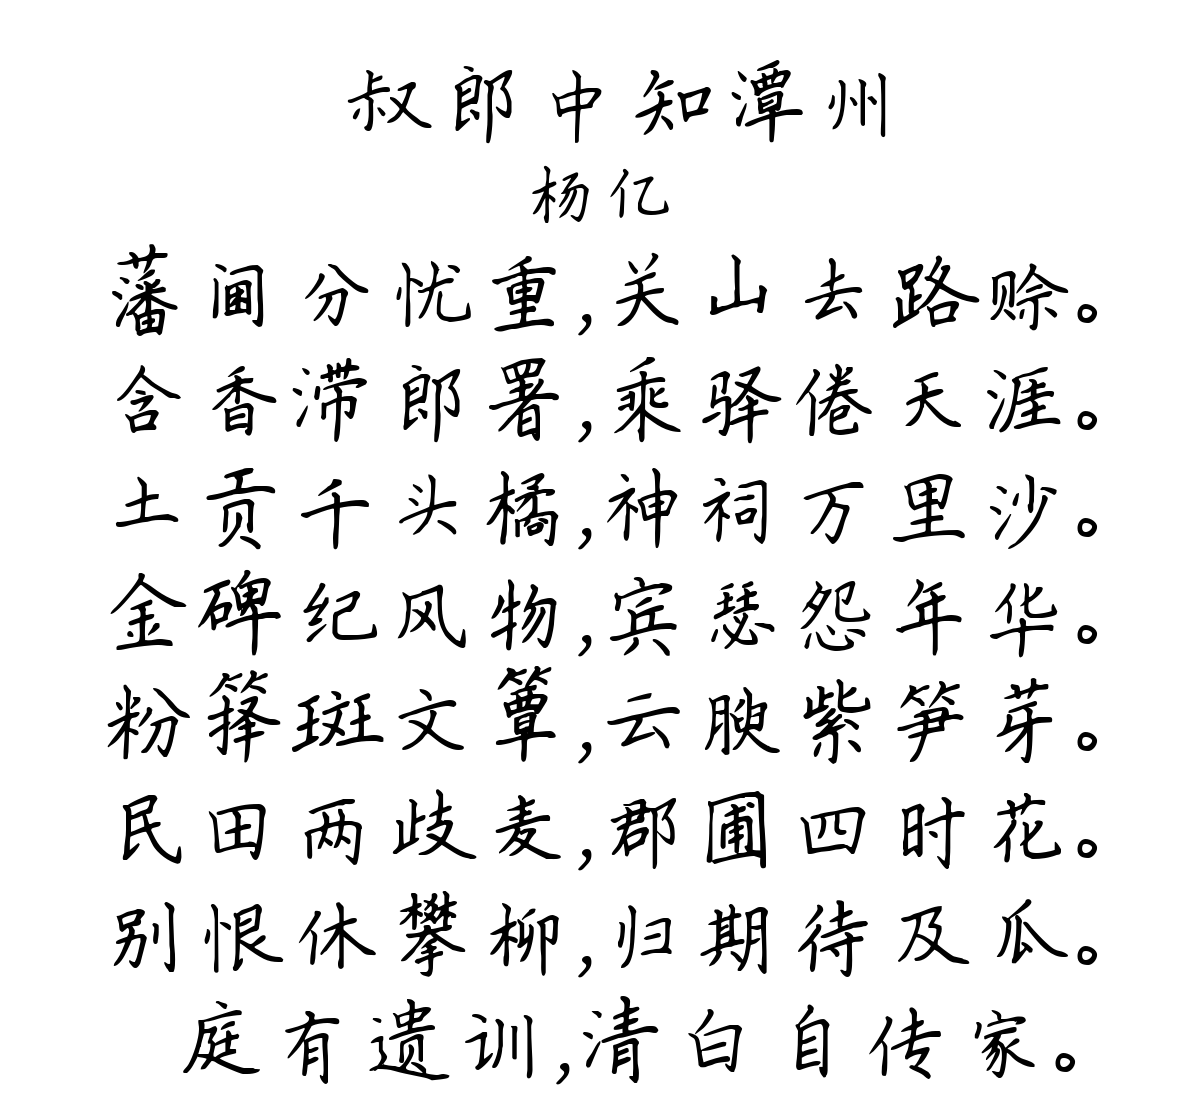 叔郎中知潭州
杨亿
藩阃分忧重,关山去路赊。
含香滞郎署,乘驿倦天涯。
土贡千头橘,神祠万里沙。
金碑纪风物,宾瑟怨年华。
粉箨斑文簟,云腴紫笋芽。
民田两歧麦,郡圃四时花。
别恨休攀柳,归期待及瓜。
庭有遗训,清白自传家。